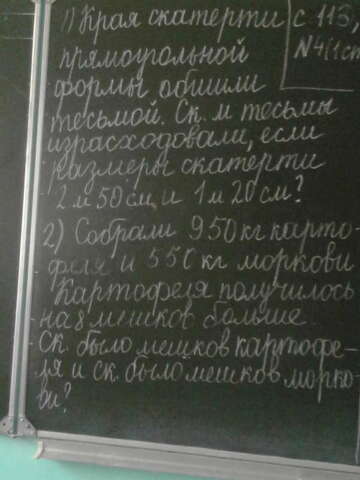 1) Края скатерти
прямоугольной
формы обшили
тесьмой. Ск. м тесьмы
израсходовали, если
размеры скатерти
2 м 50 см и 1 м 20 см?
2) Собрали 950 кг карто-
феля и 550 кг моркови
Картофеля получилось
на 8 мешков больше
Ск. было мешков картофе-
ля и ск. было мешков морко-
ви?
с 113,
№4(1ст